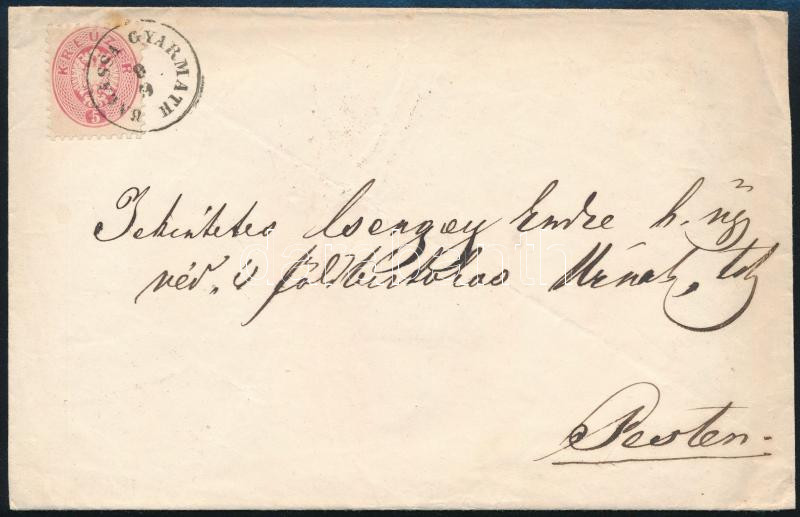 KREUZER
5
BALASSA GYARMATH
8
9
Tekintetes Csengey Endre h. ügy
véd, s földbirtokos Urnak, tek
Pesten.
darabanth